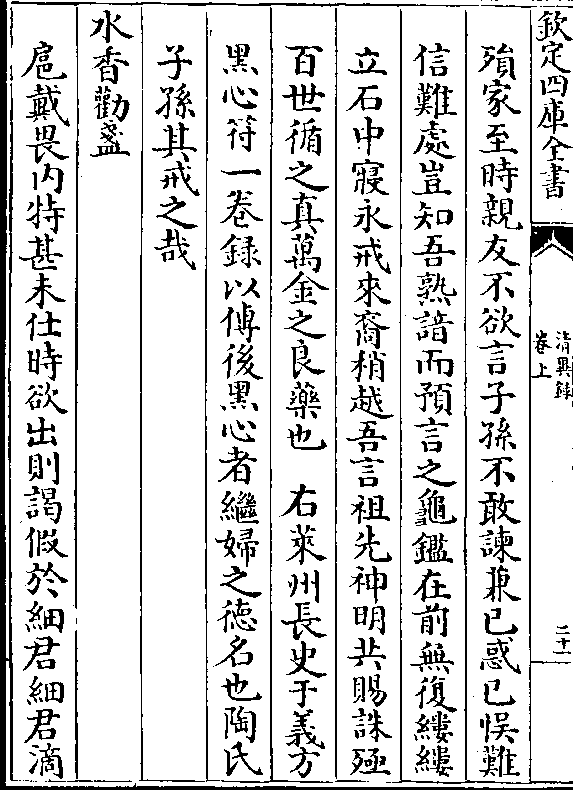 欽定四庫全書
清異錄
卷上
二十一
殞家至時親友不欲言子孫不敢諫兼已惑已悞難
信難處豈知吾熟諳而預言之龜鑑在前無復縷縷
立石中寢永戒來裔稍越吾言祖先神明共賜誅殛
百世循之真萬金之良藥也 右萊州長史于義方
黒心符一卷録以傳後黒心者繼婦之徳名也陶氏
子孫其戒之哉
水香勸盞
扈戴畏内特甚未仕時欲出則謁假於細君細君滴